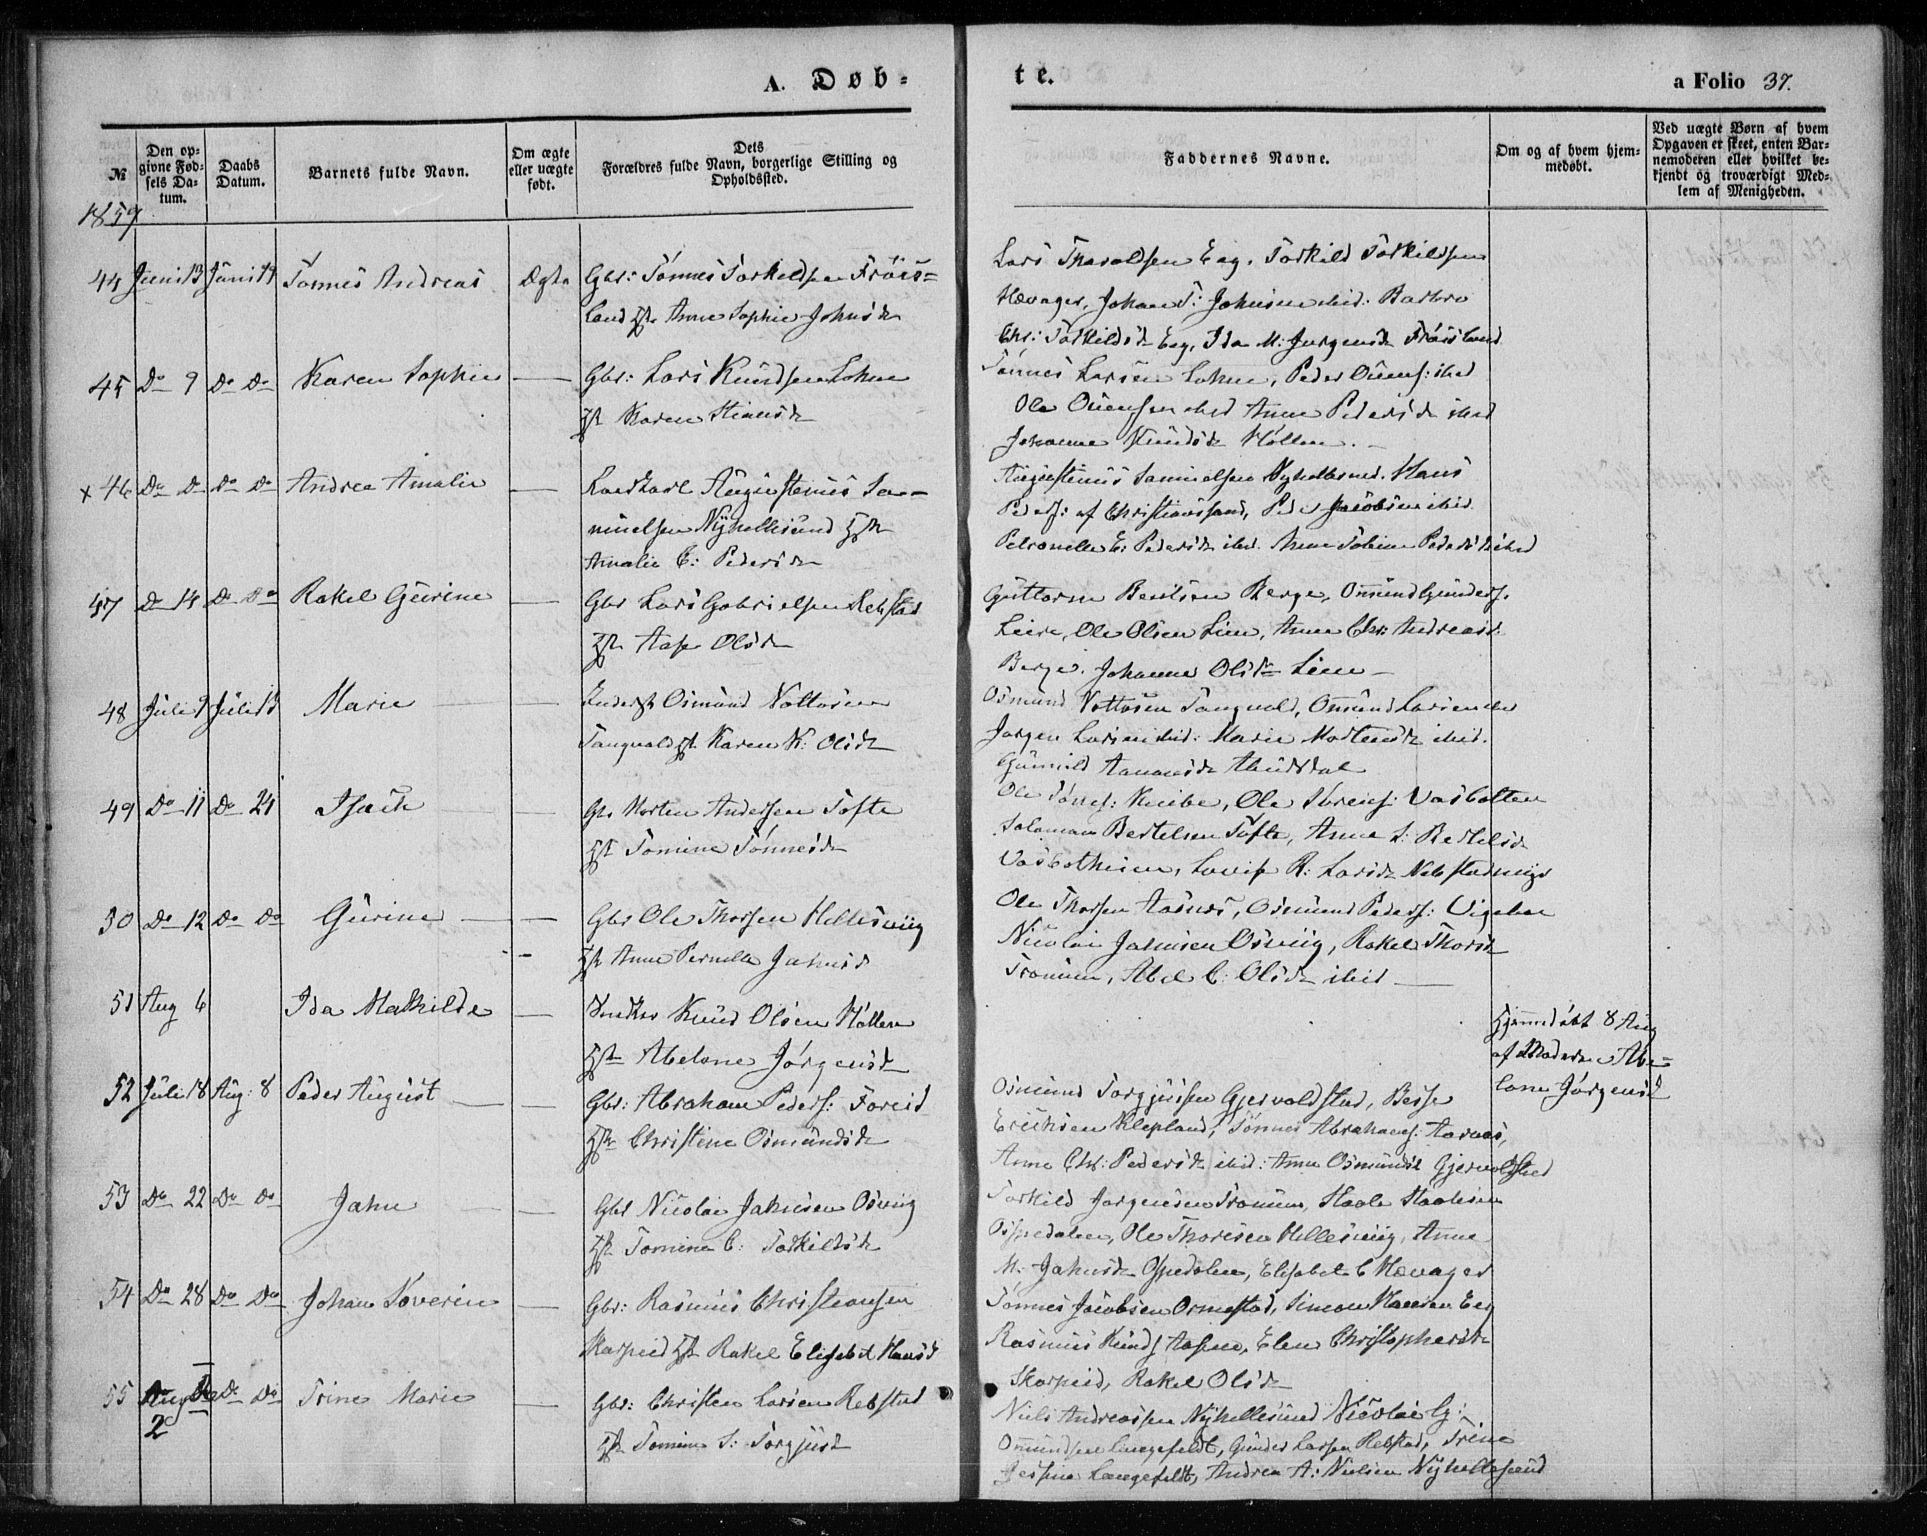 A. Døb=
te.
a Folio 37.
№
Den op-
givne Fød-
sels Da-
tum.
Daabs
Datum.
Barnets fulde Navn.
Om ægte
eller uægte
født.
Dets
Forældres fulde Navn, borgerlige Stilling og
Opholdssted.
Faddernes Navne.
Om og af hvem hjem-
medøbt.
Ved uægte Børn af hvem
Opgaven er skeet, enten Bar-
nemoderen eller hvilket be-
kjendt og troværdigt Med-
lem af Menigheden.
1859
44 Juni 13 Juni 14 Tönnes Andreas Ægte Gbr: Tönnes Torkeldsen Fröis=
land Hst Anne Sophie Johnsd
Lars Tharaldsen Eeg. Torkild Torkildsen
Hævager, Johan T: Johnsen ibid: Barbro
Chr: Torkildsd Eeg, Ida M: Jørgensd Fröisland
45 Do 9 Do Do Karen Sophie — Gbr: Lars Knudsen Lohne
Hst Karen Stiansd
Tönnes Larsen Lohne, Peder Ouens: ibid
Ole Ouensen ibid Anne Pedersd ibid
Johanne Knudsd Höllen.
x 46 Do D Do Do Andrea Amalie — Augustenus Sa-
muelsen Nyhellesund Hst
Amalie C: Pedersd
Augustenus Samuelsen Nyhellesund. Hans
Peders: af Christianssand, Peder Jacobsen ibid.
Petronelle E: Pedersd ibid. Anne Tobine Pedersd ibid
47 D 14 D Do Rakel Gurine — Gbr Lars Gabrielsen Rebstad
Hst Aase Olsd
Guttorm Bentsen Berge, Omund Gunders.
Leire, Ole Olsen Lien, Anne Chr: Andreasd.
Berge. Johanne Olsd Lien —
48 Juli 9 Juli 13 Marie — Osmund Nottosen
Tangvald Hst Karen K: Olsd
Osmund Nottosen Tangvald, Omund Larsen ibid
Jørgen Larsen ibid: Marie Mortensd ibid.
Gunnild Aanonsd
49 Do 11 Do 24 Isach — Gbr Morten Andersen Tofte
Hst Tomine Tönnesd
Ole Töns: Kneibe, Ole Vasbotten
Salomon Bertelsen Tofte, Anne S: Bertelsd
Lovise R: Larsd
50 Do 12 Do Do Gurine — Gbr Ole Thorsen Hellesviig
Hst Anne Pernelle Jahnsd
Ole Thorsen Aasnes, Osmund Peders: Vigebø
Nicolai Jahnsen Osviig, Rakel Thorsd
Tronnum, Abel C: Olsd ibid —
51 Aug 6 Ida Mathilde — Knud Olsen Höllen
Hst Abelone Jörgensd
Hjemmedøbt 8 Aug
af Moderen Abe=
lone Jørgensd
52 Juli 18 Aug: 8 Peder August — Gbr: Abraham Peders: Foreid
Hst Christine Osmundsd
Osmund Torgjusen Gjervoldstad, Besse
Erichsen Klepland, Tönnes Abrahams: Aarnes,
Anne Chr: Pedersd ibid: Anne Osmundsd Gjervoldstad
53 Do 22 Do Do Jahn — Gbr Nicolai Jahnsen Osviig
Hst Tomine C: Torkildsd
Torkild Jørgensen Tronnum, Staale Staalesen
Ospedalen, Ole Thorsen Hellesviig, Anne
M. Jahnsd Ospedalen, Elisabet C Hævager
54 Do 28 Do Do Johan Severin — Gbr: Rasmus Christiansen
Skarpeid Hst Rakel Elisabet Hansd
Tönnes Jacobsen Ormestad, Simon Hansen Eeg
Rasmus Knuds Aasene, Elen Christophersd
Skarpeid, Rakel Olsd
55 Aug 2 Do Do Trine Marie — Gbr: Christen Larsen Rebstad
Hst Tomine S: Torgjusd
Niels Andreassen Nyhellesund Nicolai G:
Omundsen Langefeldt, Gunder Larsen Rebstad, Trine
Jessine Langefeldt, Andrea A: Nielsen Nyhellesund